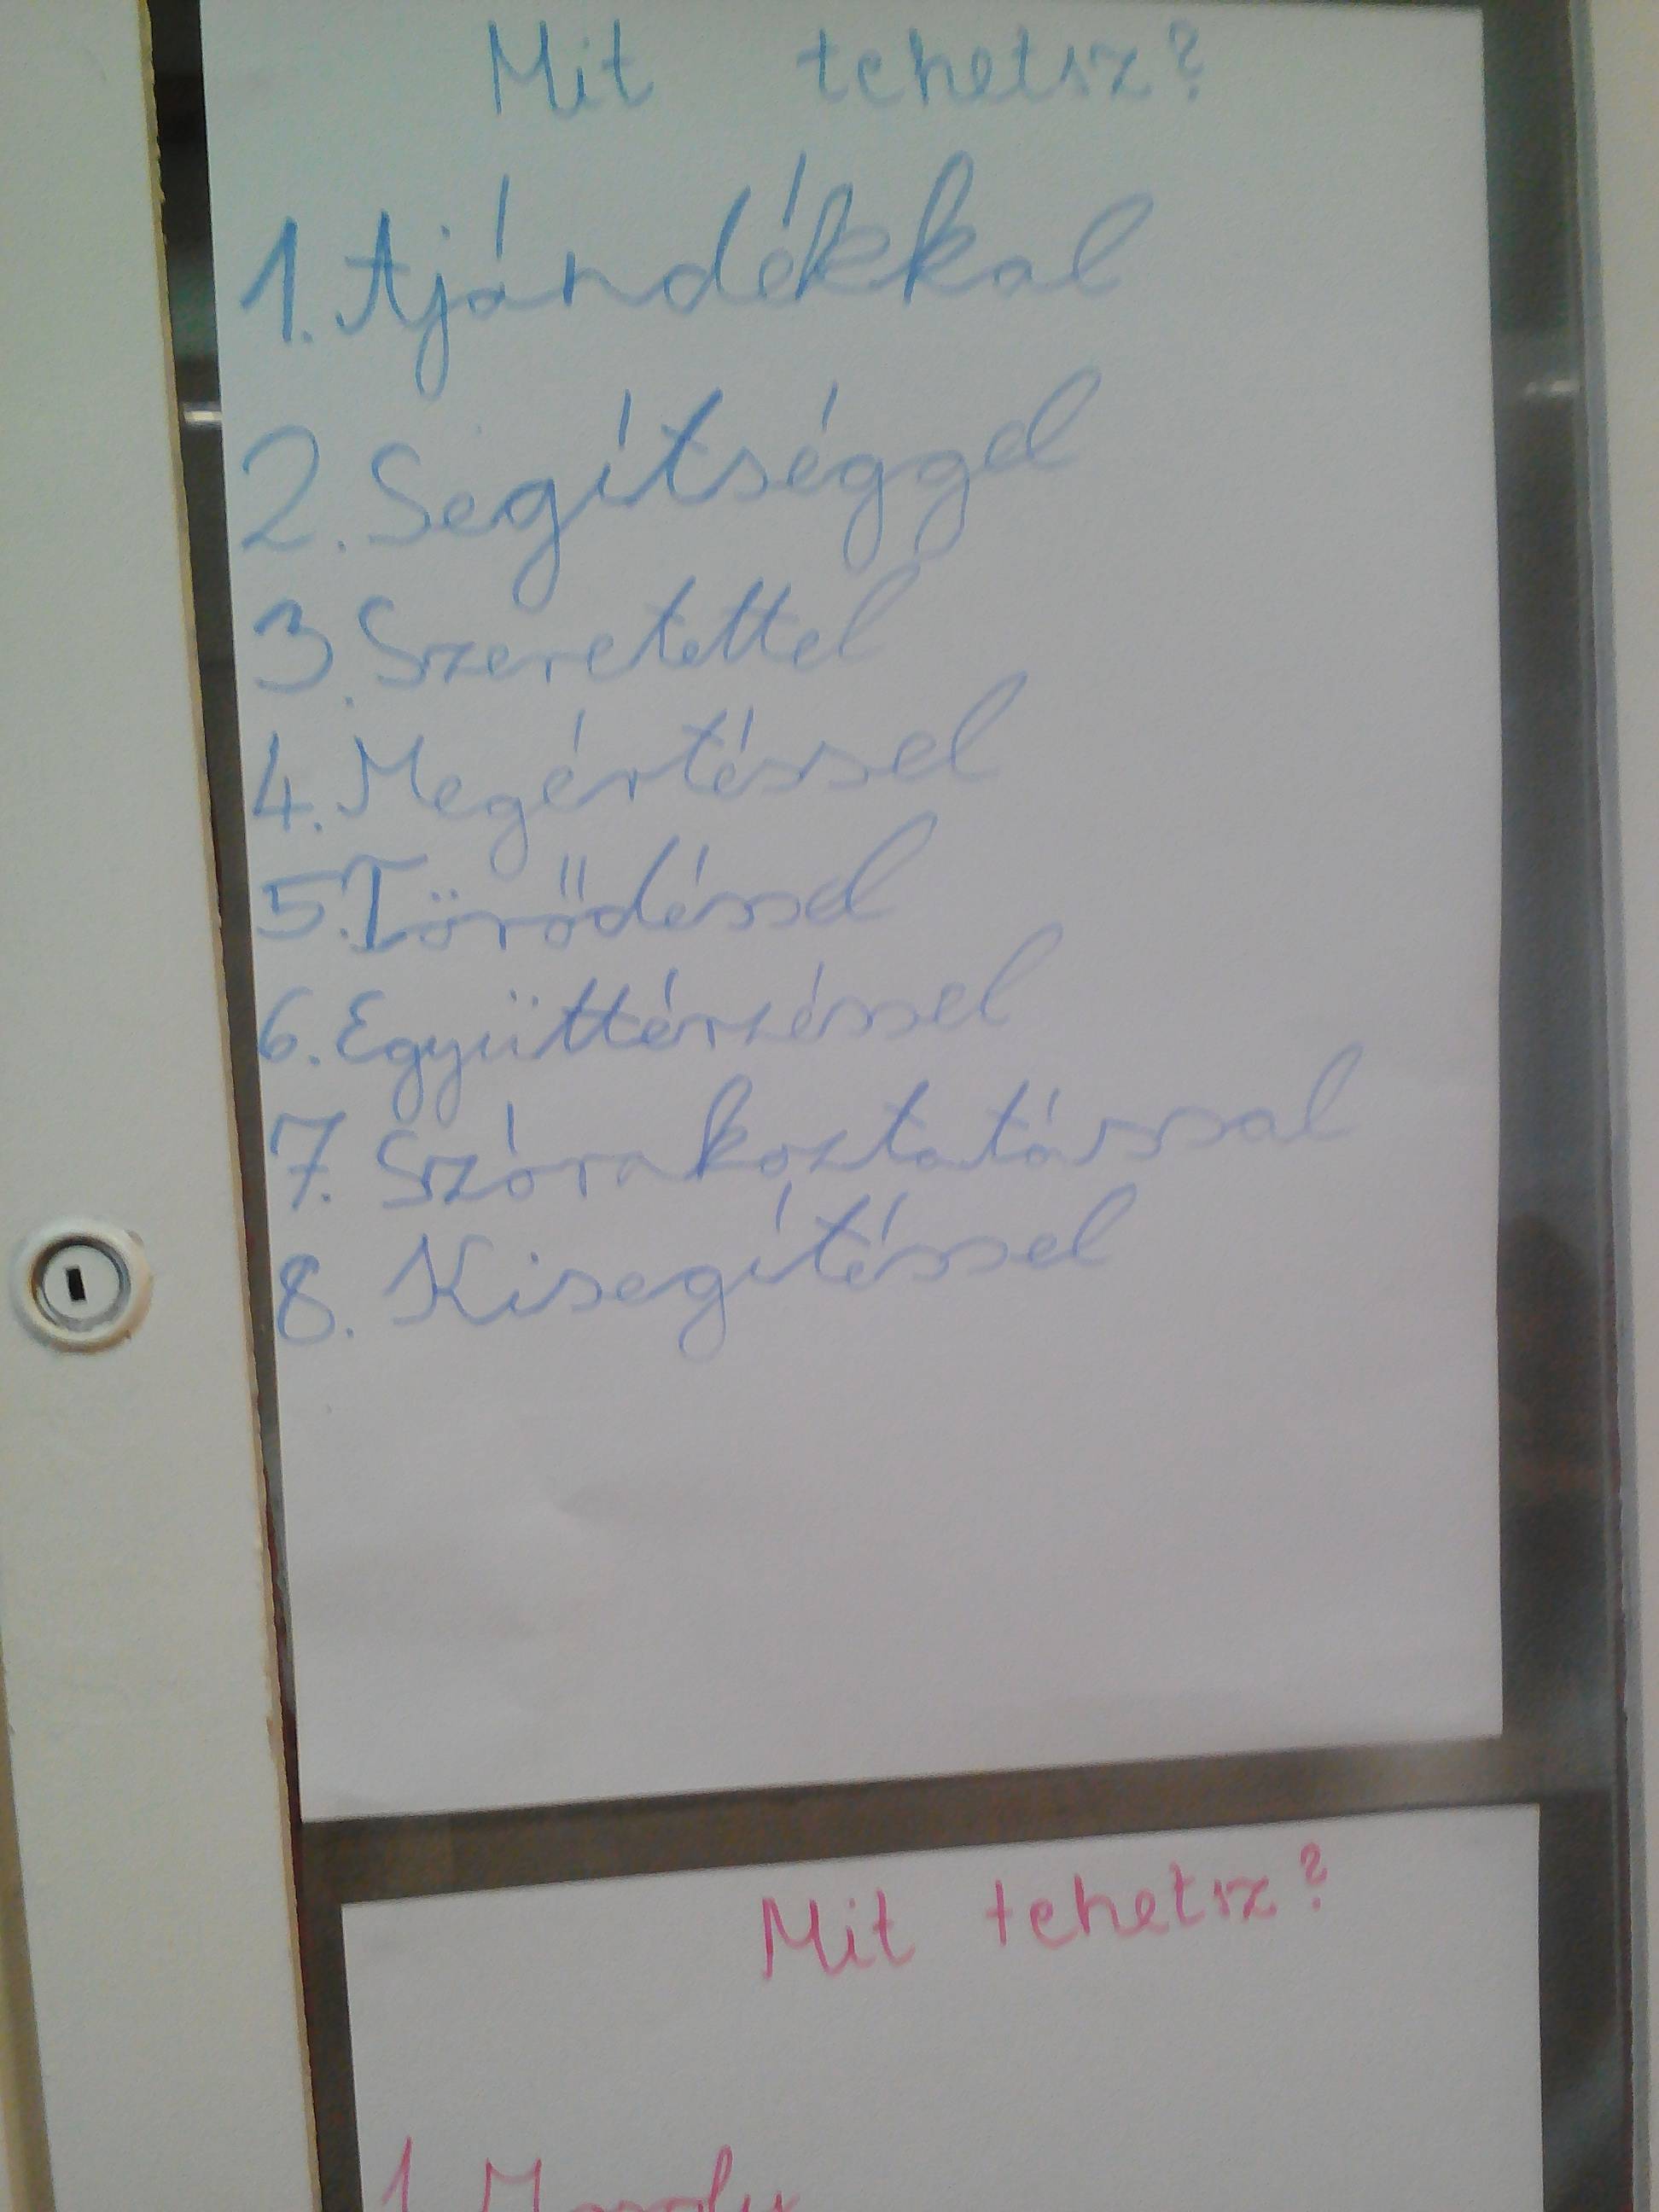 Mit tehetsz?
1. Ajándékkal
2. Segítséggel
3. Szeretettel
4. Megértéssel
5. Törődéssel
6. Együttérzéssel
7. Szórakoztatással
8. Kisegítéssel
Mit tehetsz?
1